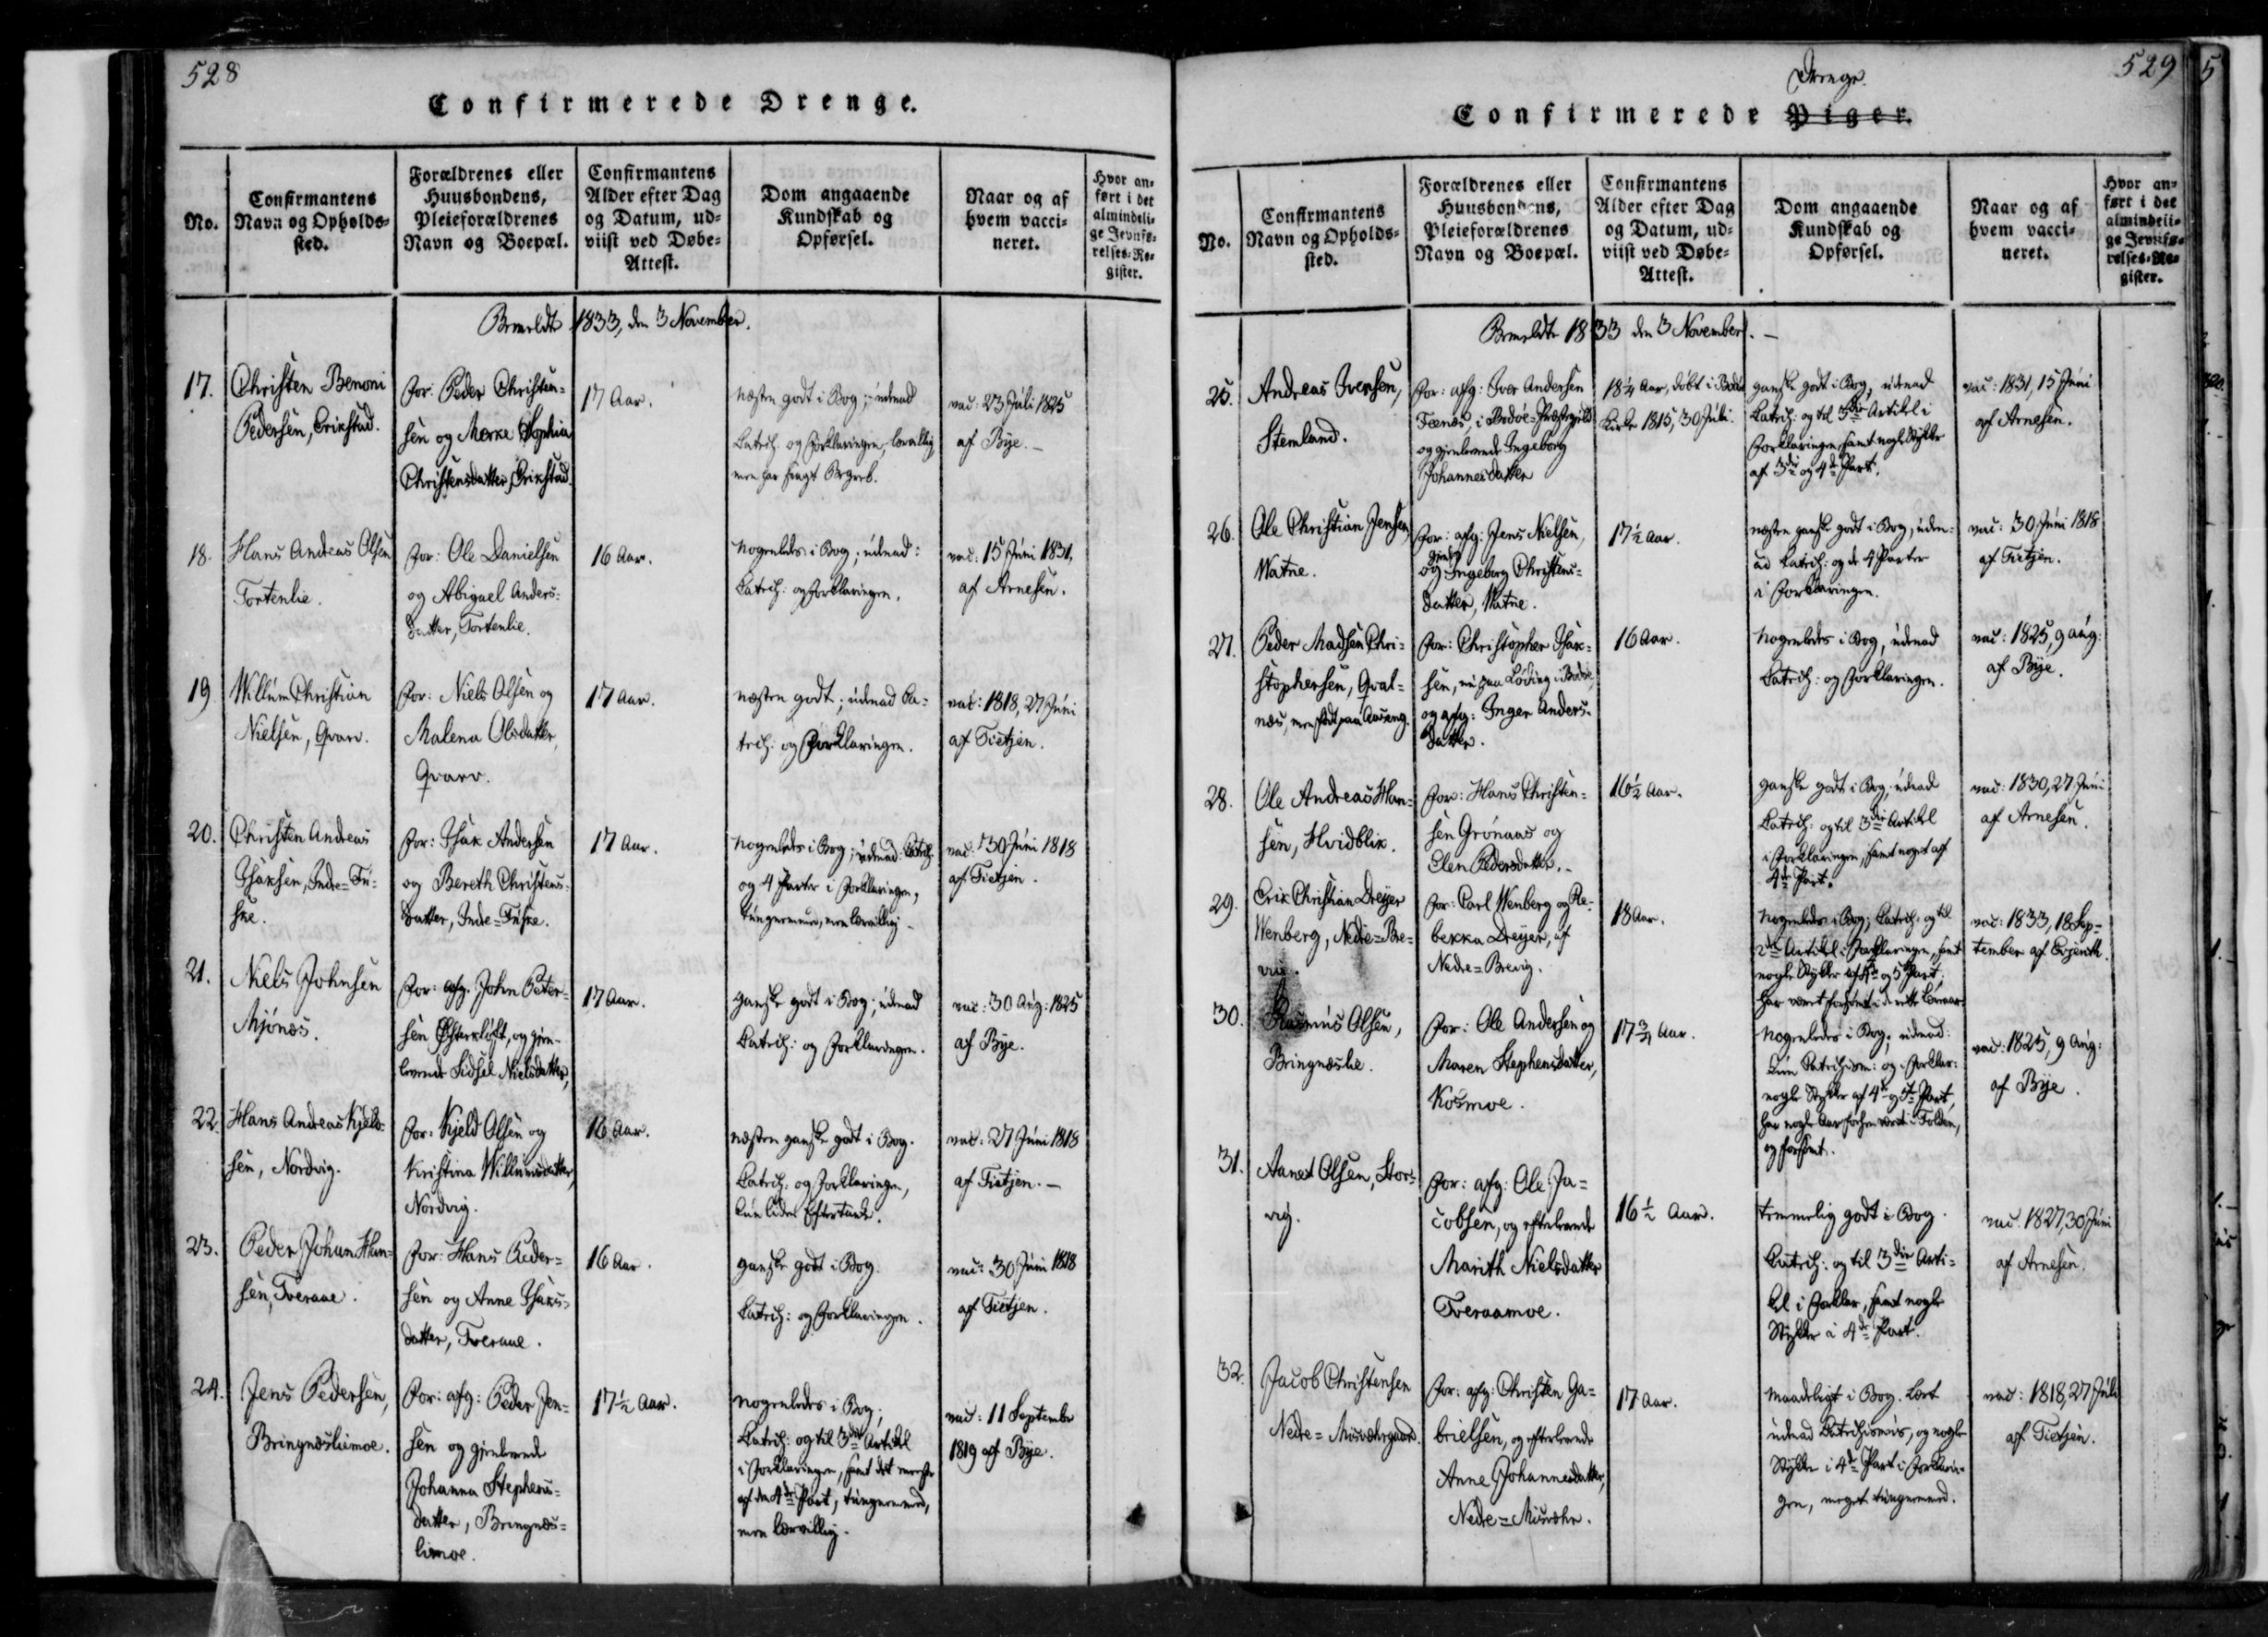 528
Confirmerede Drenge.
No.
Confirmantens
Navn og Opholds-
sted.
Forældrenes eller
Huusbondens,
Pleieforældrenes
Navn og Boepæl.
Confirmantens
Alder efter Dag
og Datum, ud-
viist ved Døbe-
Attest.
Dom angaaende
Kundskab og
Opførsel.
Naar og af
hvem vacci-
neret.
Hvor an-
ført i det
almindeli-
ge Jevnfø-
relses-Re-
gister.
1833, den 3 November.
17.
Christen Benoni
Pedersen, Erikstad.
For: Peder Christen-
sen og Marke Sophia
Christensdatter, Erikstad.
17 Aar.
næsten godt i Bog; udenad
Catech: og Forklaringen, lærvillig,
men har ringe Begreb.
vac: 23 Juli 1825
af Bye. –
18.
Hans Andreas Olsen
Tortenlie.
For: Ole Danielsen
og Abigael Anders-
datter, Tortenlie.
16 Aar.
nogenledes i Bog; udenad:
Catech: og Forklaringen.
vac: 15 Juni 1831,
af Arnesen.
19
Willum Christian
Nielsen, Qvarv.
For: Niels Olsen og
Malena Olsdatter,
Qvarv.
17 Aar.
næsten godt; udenad Ca-
tech: og Forklaringen.
vac: 1818, 27 Juni
af Tietjen.
20.
Christen Andreas
Isaksen, Indre-Fu-
ske.
For: Isak Andersen
og Bereth Christens-
datter, Indre-Fuske.
17 Aar.
nogenledes i Bog; udenad: Catech:
og 4 Parter i Forklaringen,
tungnemmed, men lærvillig –
vac: 30 Juni 1818
af Tietjen.
21.
Niels Johnsen
Mjønæs.
For: afg. John Peter-
sen Østerkløft, og gjen-
levende Sidsel Nielsdatter,
17 Aar.
ganske godt i Bog; udenad
Catech: og Forklaringen.
vac: 30 Aug: 1825
af Bye.
22.
Hans Andreas Kjeld-
sen, Nordvig.
For: Kjeld Olsen og
Kristina Willumsdatter,
Nordvig.
16 Aar.
næsten ganske godt i Bog.
Catech: og Forklaringen,
kun liden Eftertanke.
vac: 27 Juni 1818
af Tietjen. –
23.
Peder Johan Han-
sen, Tveraae.
For: Hans Peder-
sen og Anne Isaks-
datter, Tveraae.
16 Aar.
ganske godt i Bog.
Catech: og Forklaringen.
vac: 30 Juni 1818
af Tietjen.
24.
Jens Pedersen,
Bringnæsliemoe.
For: afg: Peder Jen-
sen og gjenlevende
Johanna Stephens-
datter, Bringnæs-
limoe.
17½ Aar.
nogenledes i Bog;
Catech: og til 3die Artikel
i Forklaringen, samt det meeste
af den 4de Part, tungnemmed,
men lærvillig.
vac: 11 September
1819 af Bye.
529
Drenge.
Confirmerede Piger.
No.
Confirmantens
Navn og Opholds-
sted.
Forældrenes eller
Huusbondens,
Pleieforældrenes
Navn og Boepæl.
Confirmantens
Alder efter Dag
og Datum, ud-
viist ved Døbe-
Attest.
Dom angaaende
Kundskab og
Opførsel.
Naar og af
hvem vacci-
neret.
Hvor an-
ført i det
almindeli-
ge Jevnfø-
relses-Re-
gister.
1833 den 3 November. –
25.
Andreas Iversen,
Stemland.
For: afg: Iver Andersen
Fænæs, i Bodøe-Præstegield
og gjenlevende Ingeborg
Johannesdatter
18¼ Aar, døbt i Bodøe
Kirke 1815, 30 Juli.
ganske godt i Bog, udenad
Catech: og til 3die Artikel i
Forklaringen, samt nogle Stykker
af 3die og 4de Part.
vac: 1831, 15 Juni
af Arnesen.
26.
Ole Christian Jensen,
Watne.
For: afg: Jens Nielsen,
og Ingeborg Christens-
datter, Watne.
17½ Aar.
næsten ganske godt i Bog, uden-
ad Catech: og de 4 Parter
i Forklaringen.
vac: 30 Juni 1818
af Tietjen.
27.
Peder Madsen Chri-
stophersen, Qval-
næs, men født paa Aaseng.
For: Christopher Isak-
sen, nu paa Løding i Bodøe,
og afg: Inger Anders-
datter.
16 Aar.
nogenledes i Bog, udenad
Catech: og Forklaringen.
vac: 1825, 9 Aug:
af Bye.
28.
Ole Andreas Han-
sen, Hvidblik.
For: Hans Christen-
sen Grønaas og
Elen Pedersdatter. –
16½ Aar.
ganske godt i Bog, udenad
Catech: og til 3die Artikel
i Forklaringen, samt noget af
4de Part.
vac: 1830, 27 Juni
af Arnesen.
29.
Erik Christian Dreyer
Wenberg, Nedre-Bre-
vig.
For: Carl Wenberg og Re-
bekka Dreyer, af
Nedre-Brevig.
18 Aar.
nogenledes i Bog; Catech: og til
2den Artikel i Forklaringen, samt
nogle Stykker af 4de og 5 Part;
har været forsømt i de rette Læreaar.
vac: 1833, 18 Sep-
tember af Evjenth.
30.
Rasmus Olsen,
Bringnæslie.
For: Ole Andersen og
Maren Stephensdatter,
Kosmoe.
17¾ Aar.
nogenledes i Bog; udenad:
kun Catechism: og i Forklar:
nogle Stykker af 4de og 5te Part,
har nogle Aar forhen været i Folden,
og forsømt.
vac: 1825, 9 Aug:
af Bye.
31.
Aanet Olsen, Stor-
vig.
For: afg: Ole Ja-
cobsen, og efterlevende
Marith Nielsdatter
Tveraamoe.
16½ Aar.
temmelig godt i Bog.
Catech: og til 3die Arti-
kel i Forklar, samt nogle
Stykker i 4de Part.
vac: 1827, 30 Juni
af Arnesen.
32.
Jacob Christensen
Nedre-Misværgaard.
For: afg: Christen Ga-
brielsen, og efterlevende
Anne Johannesdatter,
Nedre-Misvær.
17 Aar.
maadeligt i Bog. Lært
udenad Catechismus, og nogle
Stykker i 4de Part i Forklarin-
gen, meget tungnemmed.
vac: 1818, 27 Juli
af Tietjen.